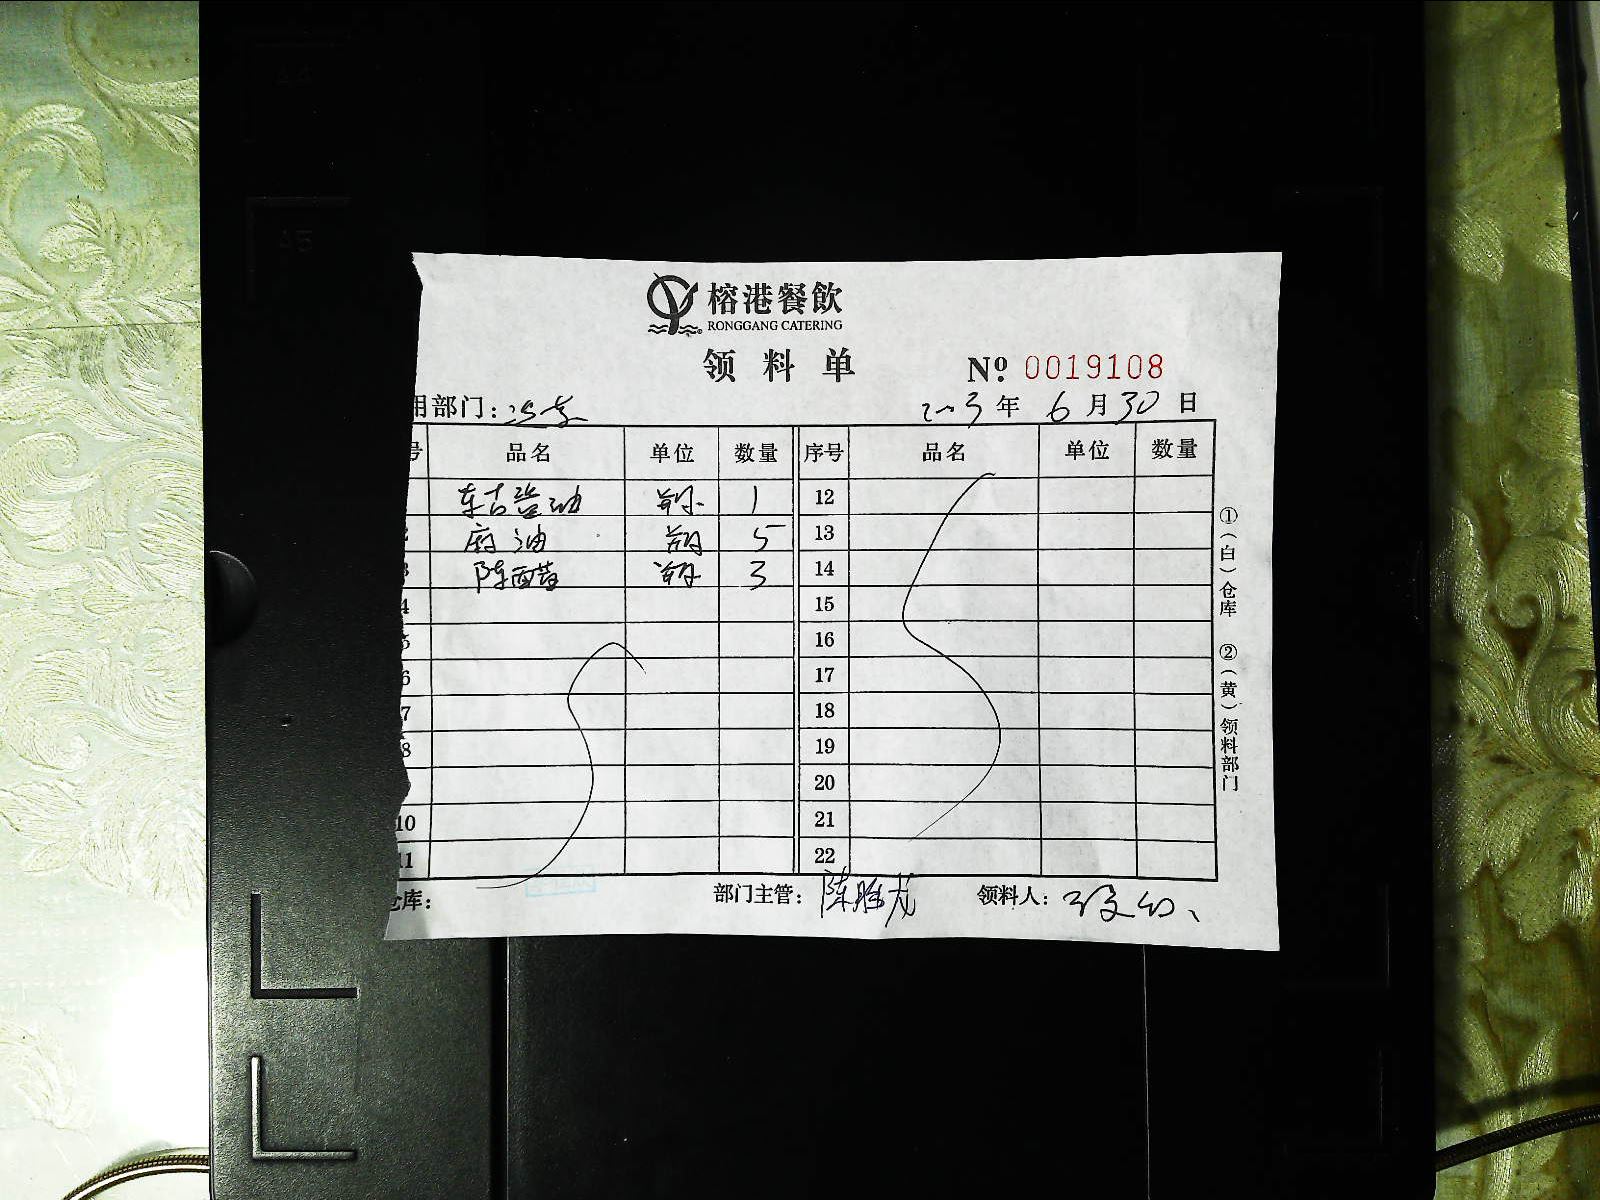 榕港餐飲
RONGGANG CATERING
领料单
№ 0019108
用部门:
年 6 月 30 日
号 品名 单位 数量 序号 品名 单位 数量
1 12
麻油 5 13
3 陈醋 3 14
4 15
5 16
6 17
7 18
8 19
20
10 21
11 22
仓库: 部门主管: 陈胜龙 领料人:
①(白)仓库 ②(黄)领料部门
A4
A5